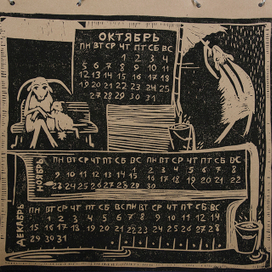 ОКТЯБРЬ
ПН ВТ СР ЧТ ПТ СБ ВС
1 2 3 4
5 6 7 8 9 10 11
12 13 14 15 16 17 18
19 20 21 22 23 24 25
27 28 29 30 31
НОЯБРЬ
ПН ВТ СР ЧТ ПТ СБ ВС ПН ВТ СР ЧТ ПТ СБ ВС
1 2 3 4 5 6 7 8
9 10 11 12 13 14 15 16 17 18 19 20 21 22
23 24 25 26 27 28 29 30
ДЕКАБРЬ
ПН ВТ СР ЧТ ПТ СБ ВС ПН ВТ СР ЧТ ПТ СБ ВС
1 2 3 4 5 6 7 8 9 10 11 12 13 14
15 16 17 18 19 20 21 22 23 24 25 26 27 28
29 30 31